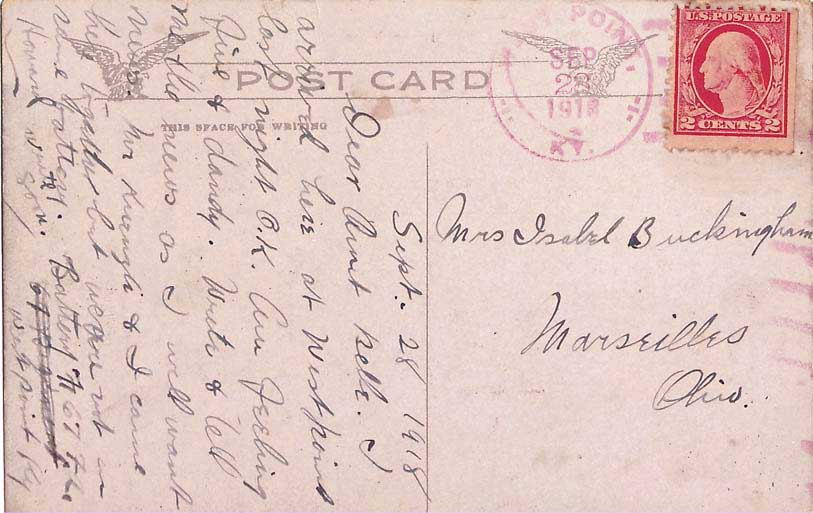 POST CARD
THIS SPACE FOR WRITING
U.S. POSTAGE
2 CENTS 2
POINT
SEP
28
1918
KY.
Mrs Isabel Buckingham
Marseilles
Ohio.
Sept. 28 1918
Dear Aunt Belle. I
arrived here at West point
last night O.K. Am feeling
fine & dandy. Write & tell
me the news as I will want
news. Mr & I came
here together but we are not in
same Battery. Battery F 67
West point Ky